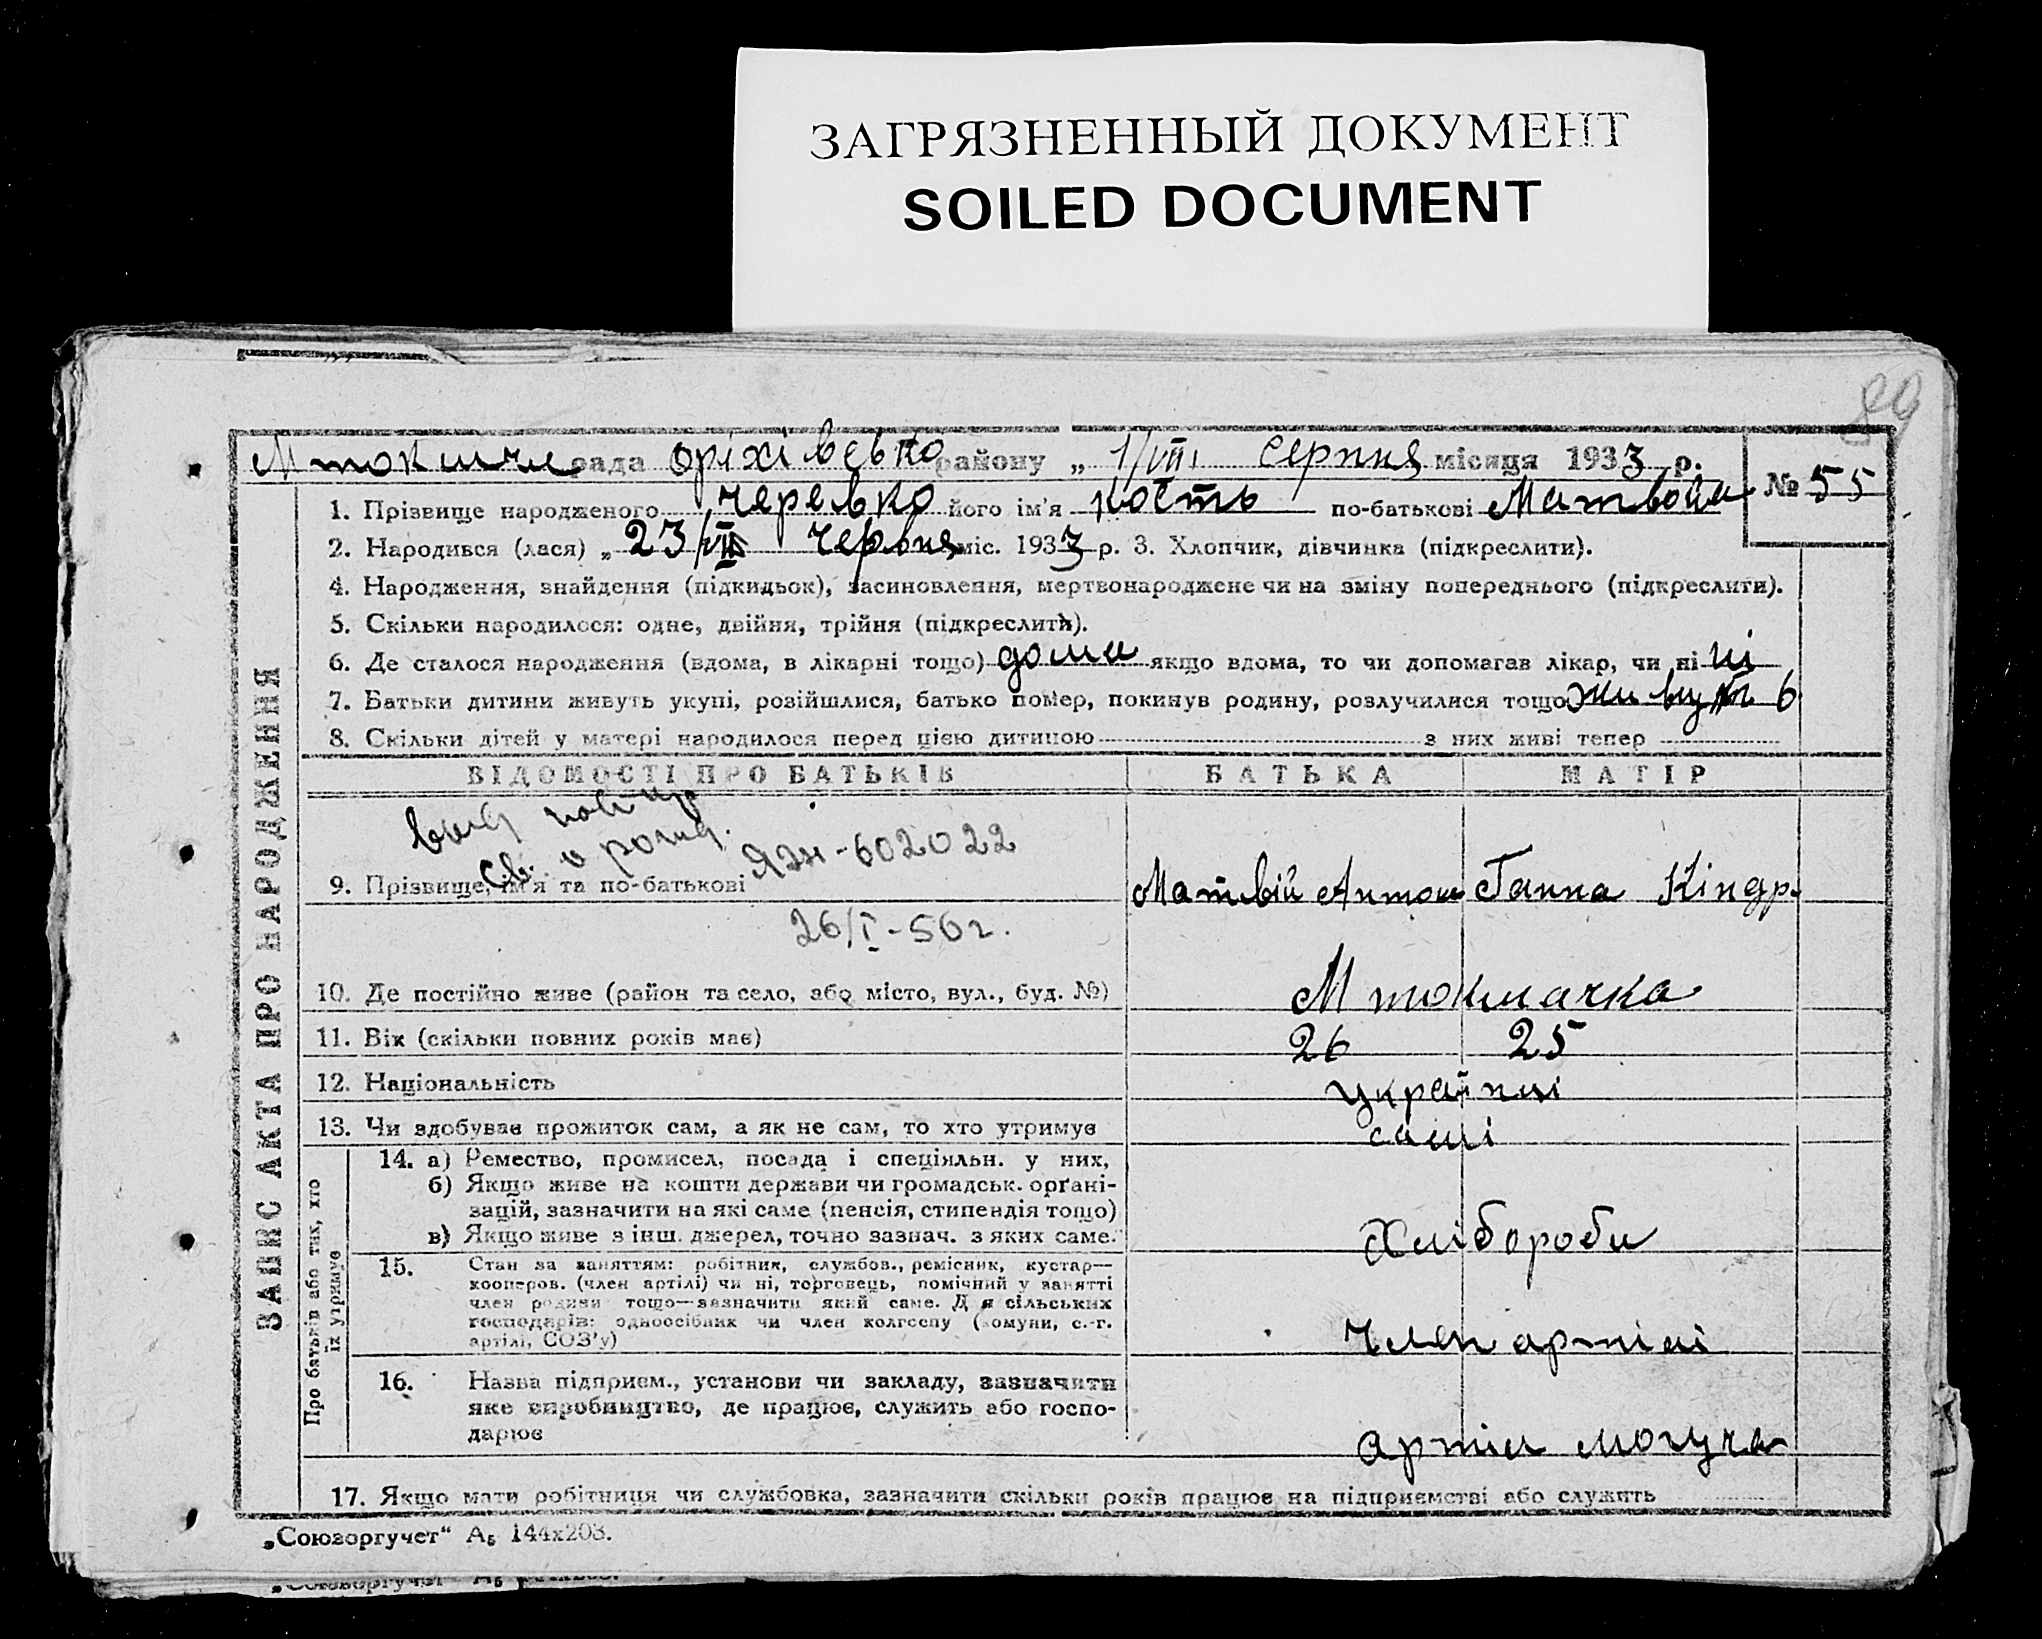 ЗАГРЯЗНЕННЫЙ ДОКУМЕНТ
SOILED DOCUMENT
89
М токмачи рада Оріхівсько району „ 1/VIII серпня місяця 1933 р.
№ 55
1. Прізвище народженого Черевко його ім'я Кость по-батькові Матвова
2. Народився (лася) „ 23/VI червня міс. 1933 р. 3. Хлопчик, дівчинка (підкреслити).
4. Народження, знайдення (підкидьок), засиновлення, мертвонароджене чи на зміну попереднього (підкреслити).
5. Скільки народилося: одне, двійня, трійня (підкреслити).
6. Де сталося народження (вдома, в лікарні тощо) дома якщо вдома, то чи допомагав лікар, чи ні ні
7. Батьки дитини живуть укупі, розійшлися, батько помер, покинув родину, розлучилися тощо живуть
8. Скільки дітей у матері народилося перед цією дитиною з них живі тепер
ЗАПИС АКТА ПРО НАРОДЖЕННЯ
ВІДОМОСТІ ПРО БАТЬКІВ БАТЬКА МАТІР
св. о рожд. ЯЭН-602022
9. Прізвище, ім'я та по-батькові Матвій Антон Ганна Кіндр.
26/I-56г.
10. Де постійно живе (район та село, або місто, вул., буд. №) М токмачка
11. Вік (скільки повних років має) 26 25
12. Національність українці
13. Чи здобуває прожиток сам, а як не сам, то хто утримує самі
Про батьків або тих, хто їх утримує
14. а) Ремество, промисел, посада і спеціяльн. у них,
б) Якщо живе на кошти держави чи громадськ. органі-
зацій, зазначити на які саме (пенсія, стипендія тощо)
в) Якщо живе з інш. джерел, точно зазнач. з яких саме. Хлібороби
15. Стан за заняттям: робітник, службов., ремісник, кустар—
кооперов. (член артілі) чи ні, торговець, помічний у занятті
член родини тощо—зазначити який саме. Д я сільських
господарів: одноосібник чи член колгоспу (комуни, с.-г.
артілі, СОЗ'у) Член артілі
16. Назва підприєм., установи чи закладу, зазначити
яке виробництво, де працює, служить або госпо-
дарює артіл могуча
17. Якщо мати робітниця чи службовка, зазначити скільки років працює на підприємстві або служить
„Союзоргучет“ А5 144х203.
„Союзоргучет“ А5